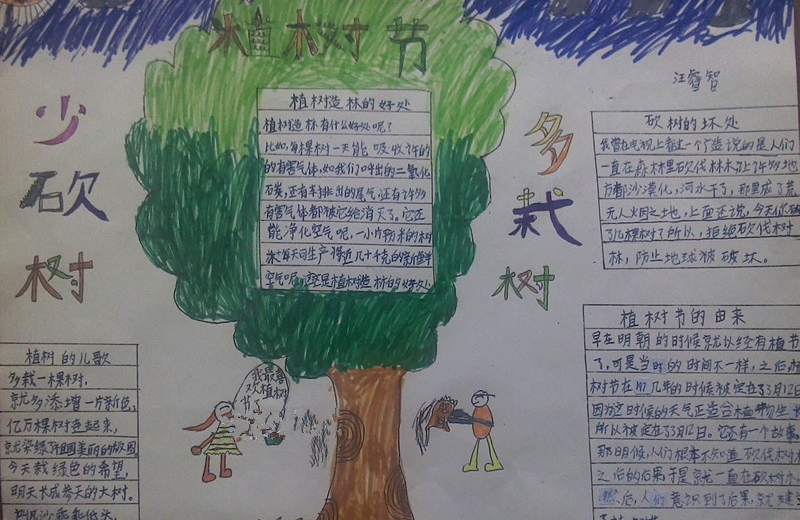 植树节
汪睿智
少砍树
多栽树
植树造林的好处
植树造林有什么好处呢?
比如,每棵树一天能吸收许的
的有害气体,如我们呼出的二氧化
石炭,还有车排出的尾气,还有许多
有害气体都被它给消灭了。它还
能净化空气呢,一小片粉米的树
林每天可生产将近几十千克的新鲜
空气呢,这是植树造林的好处
砍树的坏处
我曾在电视上看过一个
说的是人们
一直在森林里砍伐林木,让许多地
方都沙漠化,河水干了,那里成了荒
无人火因之地,上面还说,今天
了几棵树了所以,拒绝砍伐树
林,防止地球被破坏。
植树节的由来
早在明朝的时候就以经有植节
了,可是当时的时间不一样,之后
树节在
几年的时候被定在3月12日
因为这时候的天气正适合植物生
所以被定在3月12日。它还有一个故
那日月候,人们根本不知道砍伐树木
之后的后果,于是就一直在砍树木
然后,人们意识到了后果,就
植树的儿歌
多栽一棵树,
就多添增一片新色,
亿万棵树连起来,
就染绿祖国美丽的版图
今天栽绿色的希望,
明天长成参天的大树。
把风沙乖乖低头,
我最喜欢植树节了